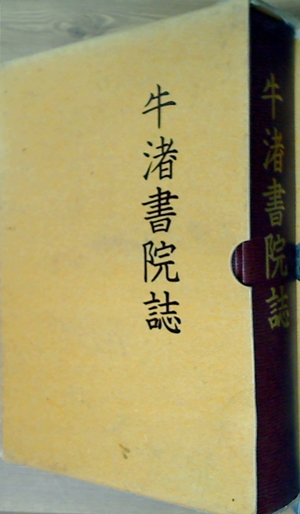 牛渚書院誌
牛渚書院誌